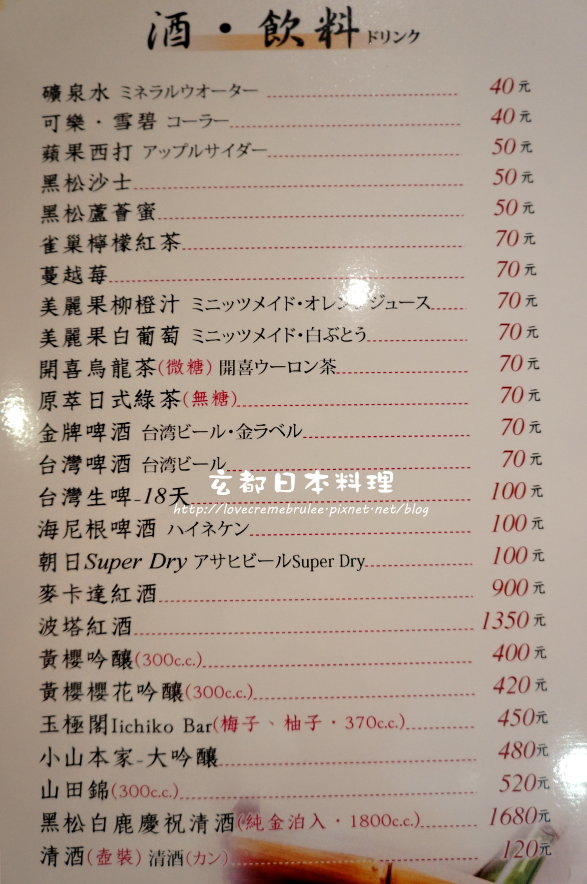 酒・飲料 ドリンク
礦泉水 ミネラルウオーター 40元
可樂・雪碧 コーラー 40元
蘋果西打 アップルサイダー 50元
黑松沙士 50元
黑松蘆薈蜜 50元
雀巢檸檬紅茶 70元
蔓越莓 70元
美麗果柳橙汁 ミニッツメイド・オレンジジュース 70元
美麗果白葡萄 ミニッツメイド・白ぶとう 70元
開喜烏龍茶(微糖) 開喜ウーロン茶 70元
原萃日式綠茶(無糖) 70元
金牌啤酒 台湾ビール・金ラベル 70元
台灣啤酒 台湾ビール 70元
玄都日本料理
台灣生啤-18天 100元
http://lovecremebrulee.pixnet.net/blog
海尼根啤酒 ハイネケン 100元
朝日Super Dry アサヒビールSuper Dry 100元
麥卡達紅酒 900元
波塔紅酒 1350元
黃櫻吟釀(300c.c.) 400元
黃櫻櫻花吟釀(300c.c.) 420元
玉極閣Iichiko Bar(梅子、柚子・370c.c.) 450元
小山本家-大吟釀 480元
山田錦(300c.c.) 520元
黑松白鹿慶祝清酒(純金泊入・1800c.c.) 1680元
清酒(壺裝) 清酒(カン) 120元